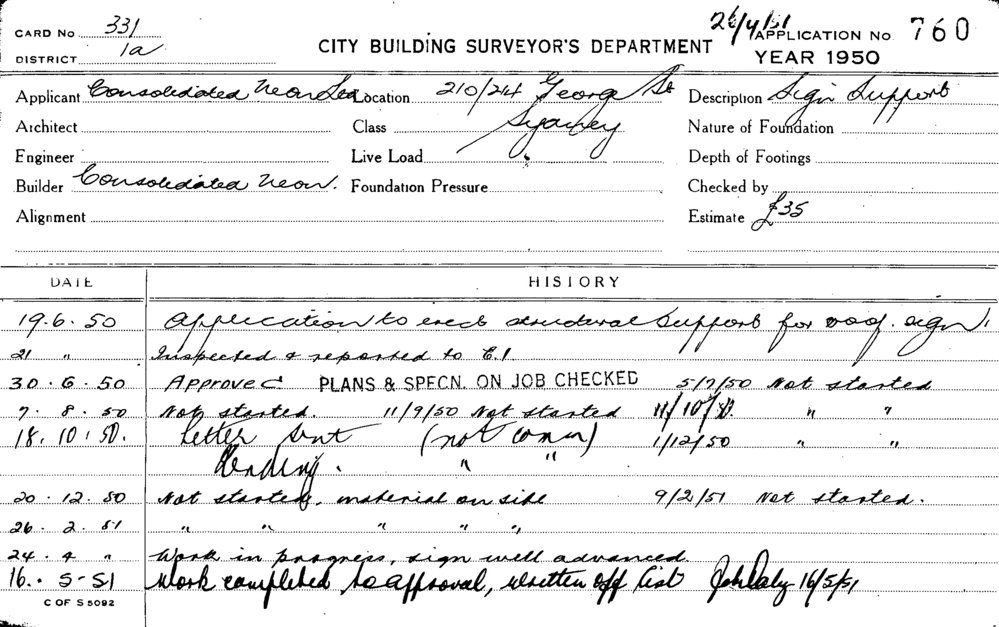 CARD No 331
26/4/51 APPLICATION No 760
DISTRICT 1a
CITY BUILDING SURVEYOR'S DEPARTMENT
YEAR 1950
Applicant Consolidated Neon Location 210/214 George St Description Sign Support
Architect Class Sydney Nature of Foundation
Engineer Live Load Depth of Footings
Builder Consolidated Neon. Foundation Pressure Checked by
Alignment Estimate £35
DATE HISTORY
19.6.50 Application to erect structural support for roof sign.
21 " Inspected & reported to E.1
30.6.50 Approved PLANS & SPECN. ON JOB CHECKED 5/7/50 Not started
7.8.50 Not started. 11/9/50 Not started 11/10/50 " "
18.10.50. Letter sent (not comm) 1/12/50 " "
Pending. " "
20.12.50 Not started, material on site 9/2/51 Not started.
26.2.51 " " " " "
24.4 " Work in progress, sign well advanced.
16.5-51 Work completed to approval, written off list 16/5/51
C OF S 5092